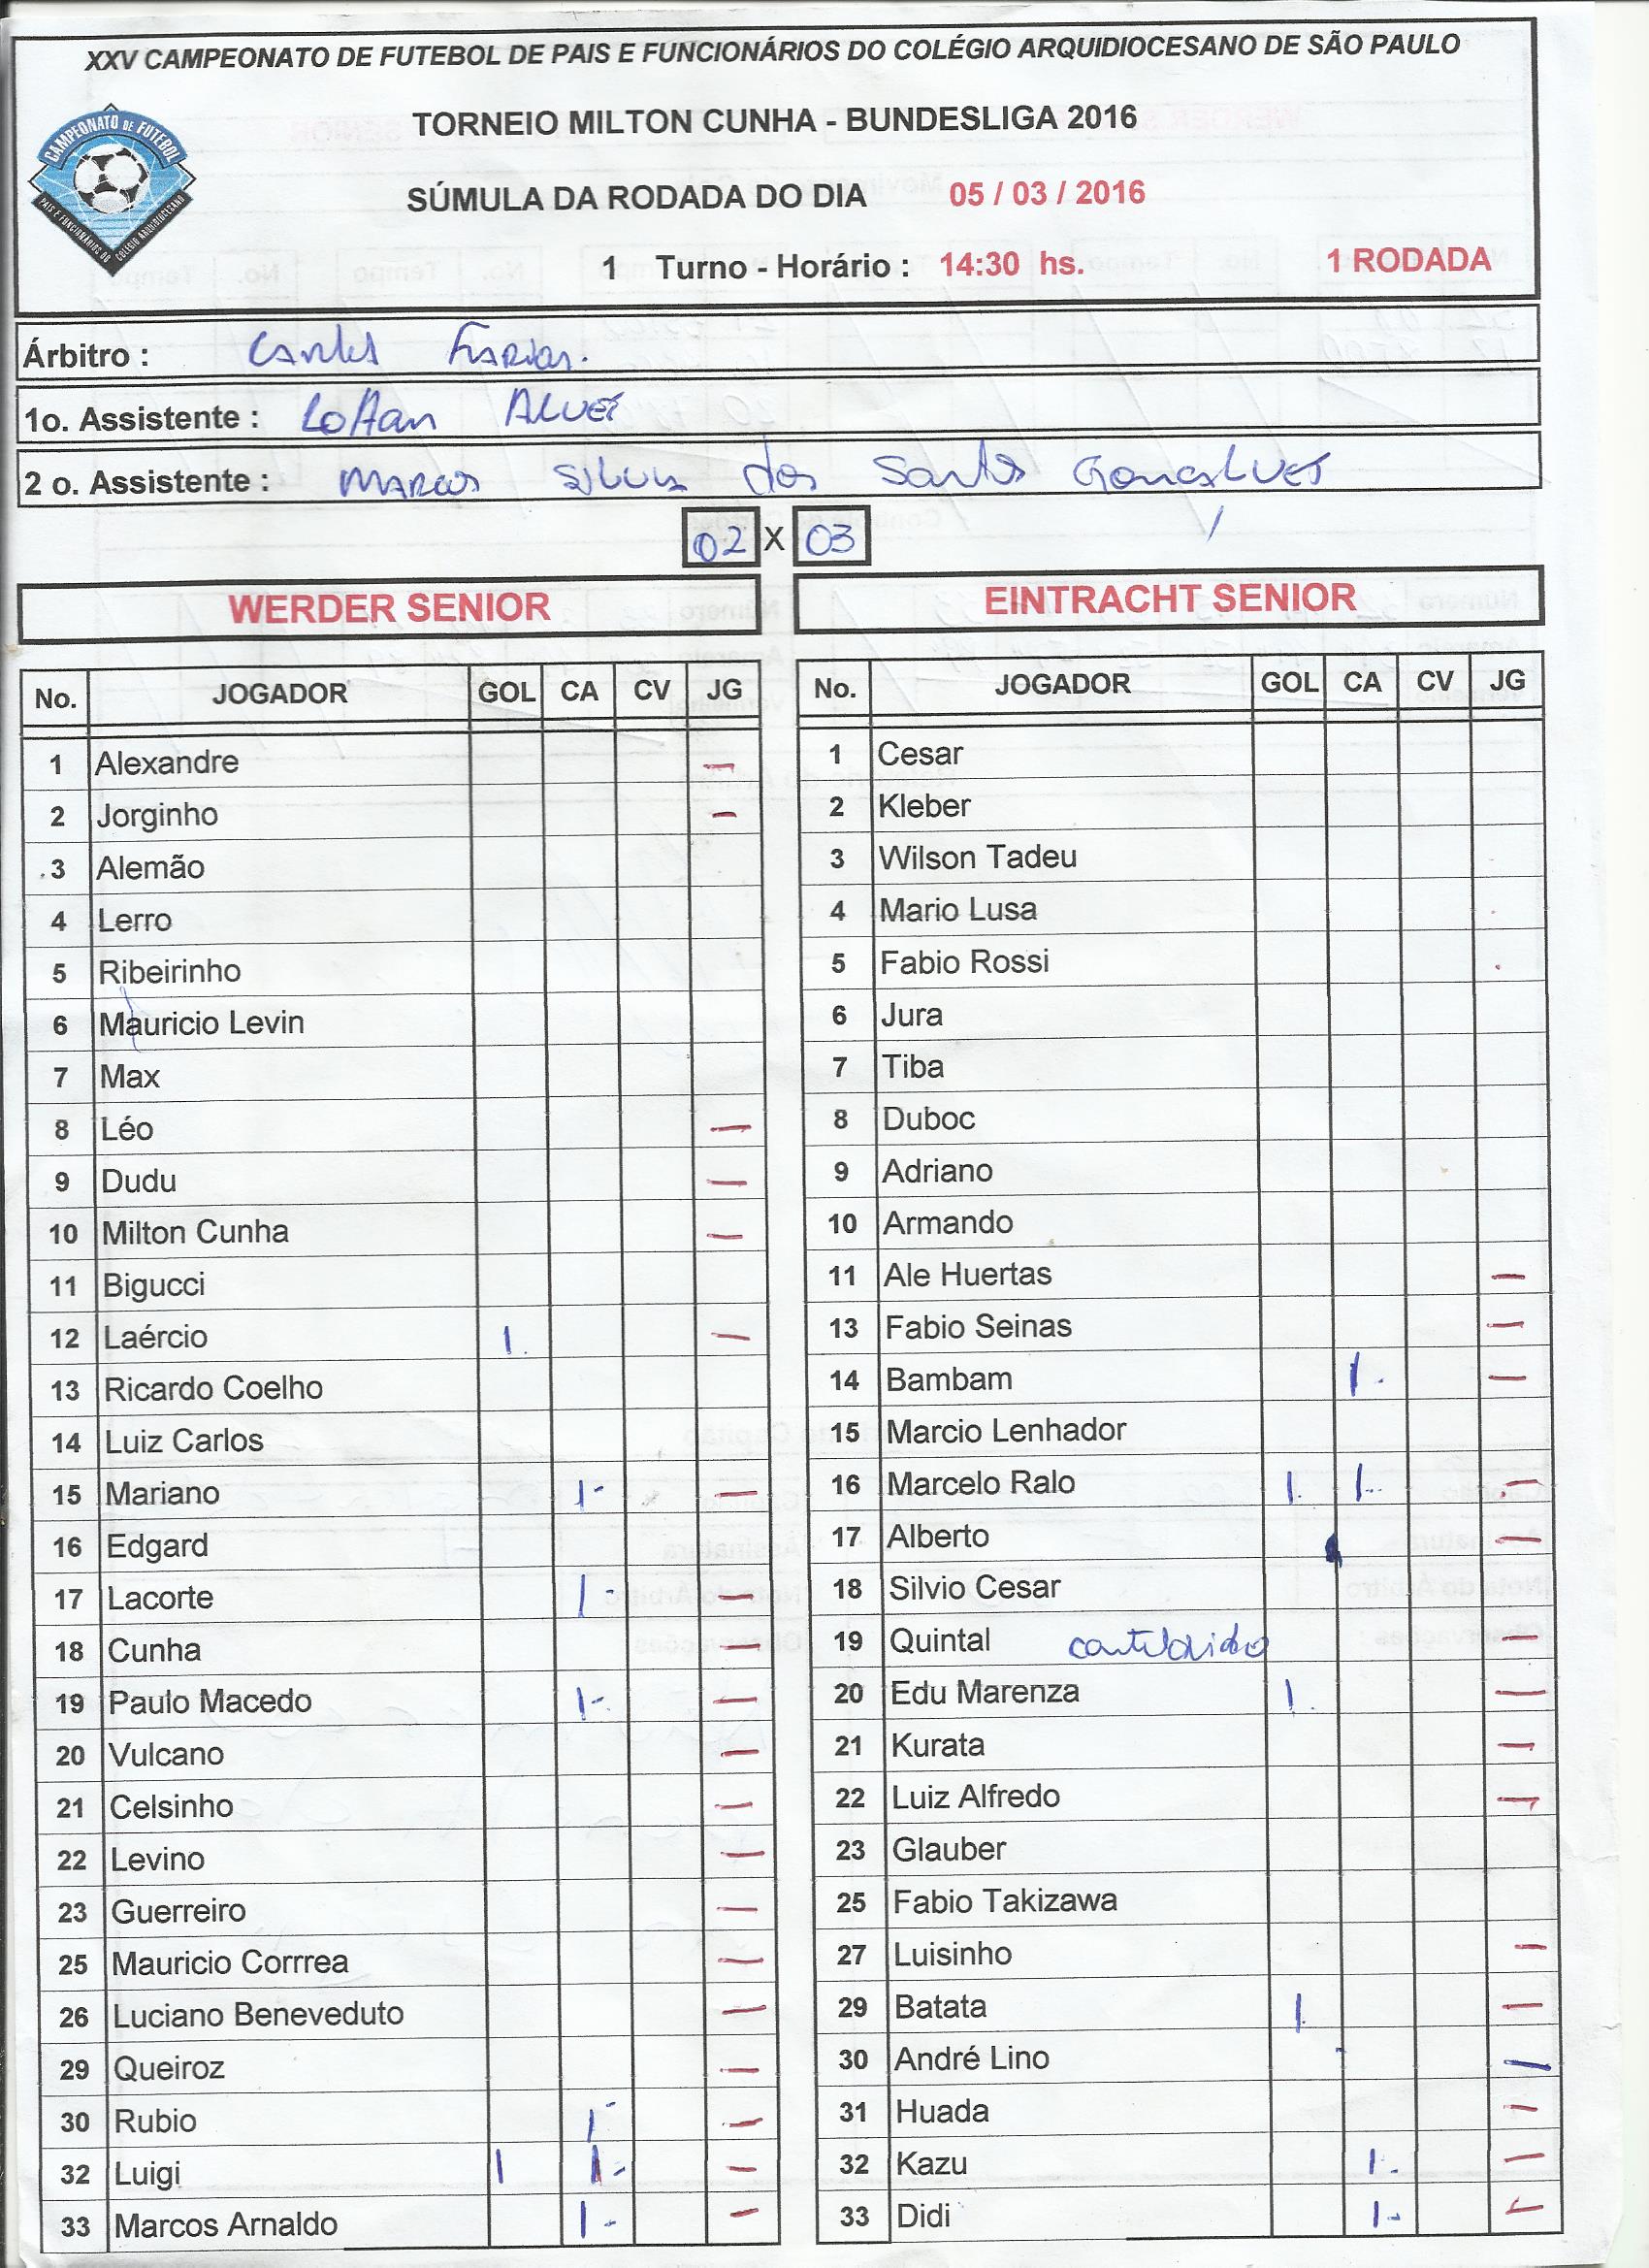 XXV CAMPEONATO DE FUTEBOL DE PAIS E FUNCIONÁRIOS DO COLÉGIO ARQUIDIOCESANO DE SÃO PAULO
CAMPEONATO DE FUTEBOL
PAIS E FUNCIONÁRIOS DO COLÉGIO ARQUIDIOCESANO
TORNEIO MILTON CUNHA - BUNDESLIGA 2016
SÚMULA DA RODADA DO DIA 05 / 03 / 2016
1 Turno - Horário : 14:30 hs. 1 RODADA
Árbitro : Carlos Farias.
1o. Assistente : Alves
2 o. Assistente : Marcos Silva dos Santos Gonçalves
02 X 03
WERDER SENIOR EINTRACHT SENIOR
No. JOGADOR GOL CA CV JG No. JOGADOR GOL CA CV JG
1 Alexandre — 1 Cesar
2 Jorginho — 2 Kleber
3 Alemão 3 Wilson Tadeu
4 Lerro 4 Mario Lusa
5 Ribeirinho 5 Fabio Rossi
6 Mauricio Levin 6 Jura
7 Max 7 Tiba
8 Léo — 8 Duboc
9 Dudu — 9 Adriano
10 Milton Cunha — 10 Armando
11 Bigucci 11 Ale Huertas —
12 Laércio 1. — 13 Fabio Seinas —
13 Ricardo Coelho 14 Bambam 1. —
14 Luiz Carlos 15 Marcio Lenhador
15 Mariano 1- — 16 Marcelo Ralo 1. 1. —
16 Edgard 17 Alberto —
17 Lacorte 1- — 18 Silvio Cesar
18 Cunha — 19 Quintal —
19 Paulo Macedo 1- — 20 Edu Marenza 1. —
20 Vulcano — 21 Kurata —
21 Celsinho — 22 Luiz Alfredo —
22 Levino — 23 Glauber
23 Guerreiro — 25 Fabio Takizawa
25 Mauricio Corrrea — 27 Luisinho —
26 Luciano Beneveduto — 29 Batata 1. —
29 Queiroz — 30 André Lino —
30 Rubio 1- — 31 Huada —
32 Luigi 1 1- — 32 Kazu 1. —
33 Marcos Arnaldo 1- — 33 Didi 1- —